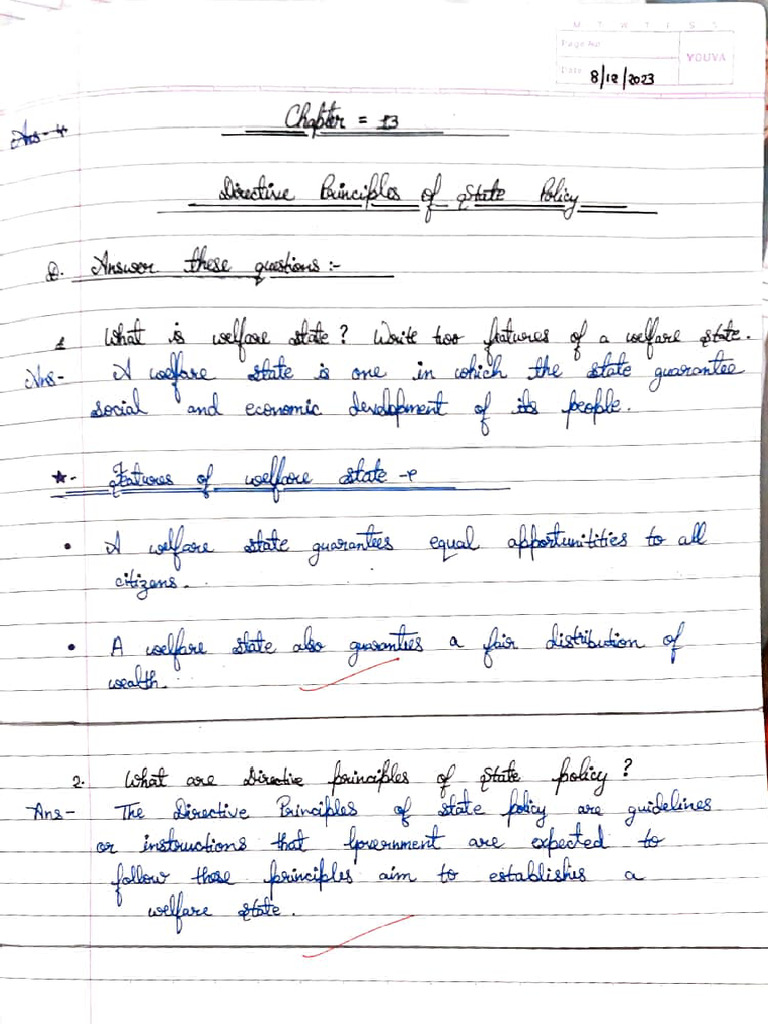 M T W T F S S
Page No.
YOUVA
Date 8/12/2023
Ans-4
Chapter = 13
Directive Principles of State Policy
D. Answer these questions :-
1 What is welfare state? Write two features of a welfare state.
Ans- A welfare state is one in which the state guarantee
social and economic development of its people.
★- Features of welfare state -
• A welfare state guarantees equal apportunitities to all
citizens.
• A welfare state also guranties a fair distribution of
wealth.
2. What are Directive principles of state policy ?
Ans- The Directive Principles of state policy are guidelines
or instructions that Government are expected to
follow those principles aim to establishis a
welfare state.